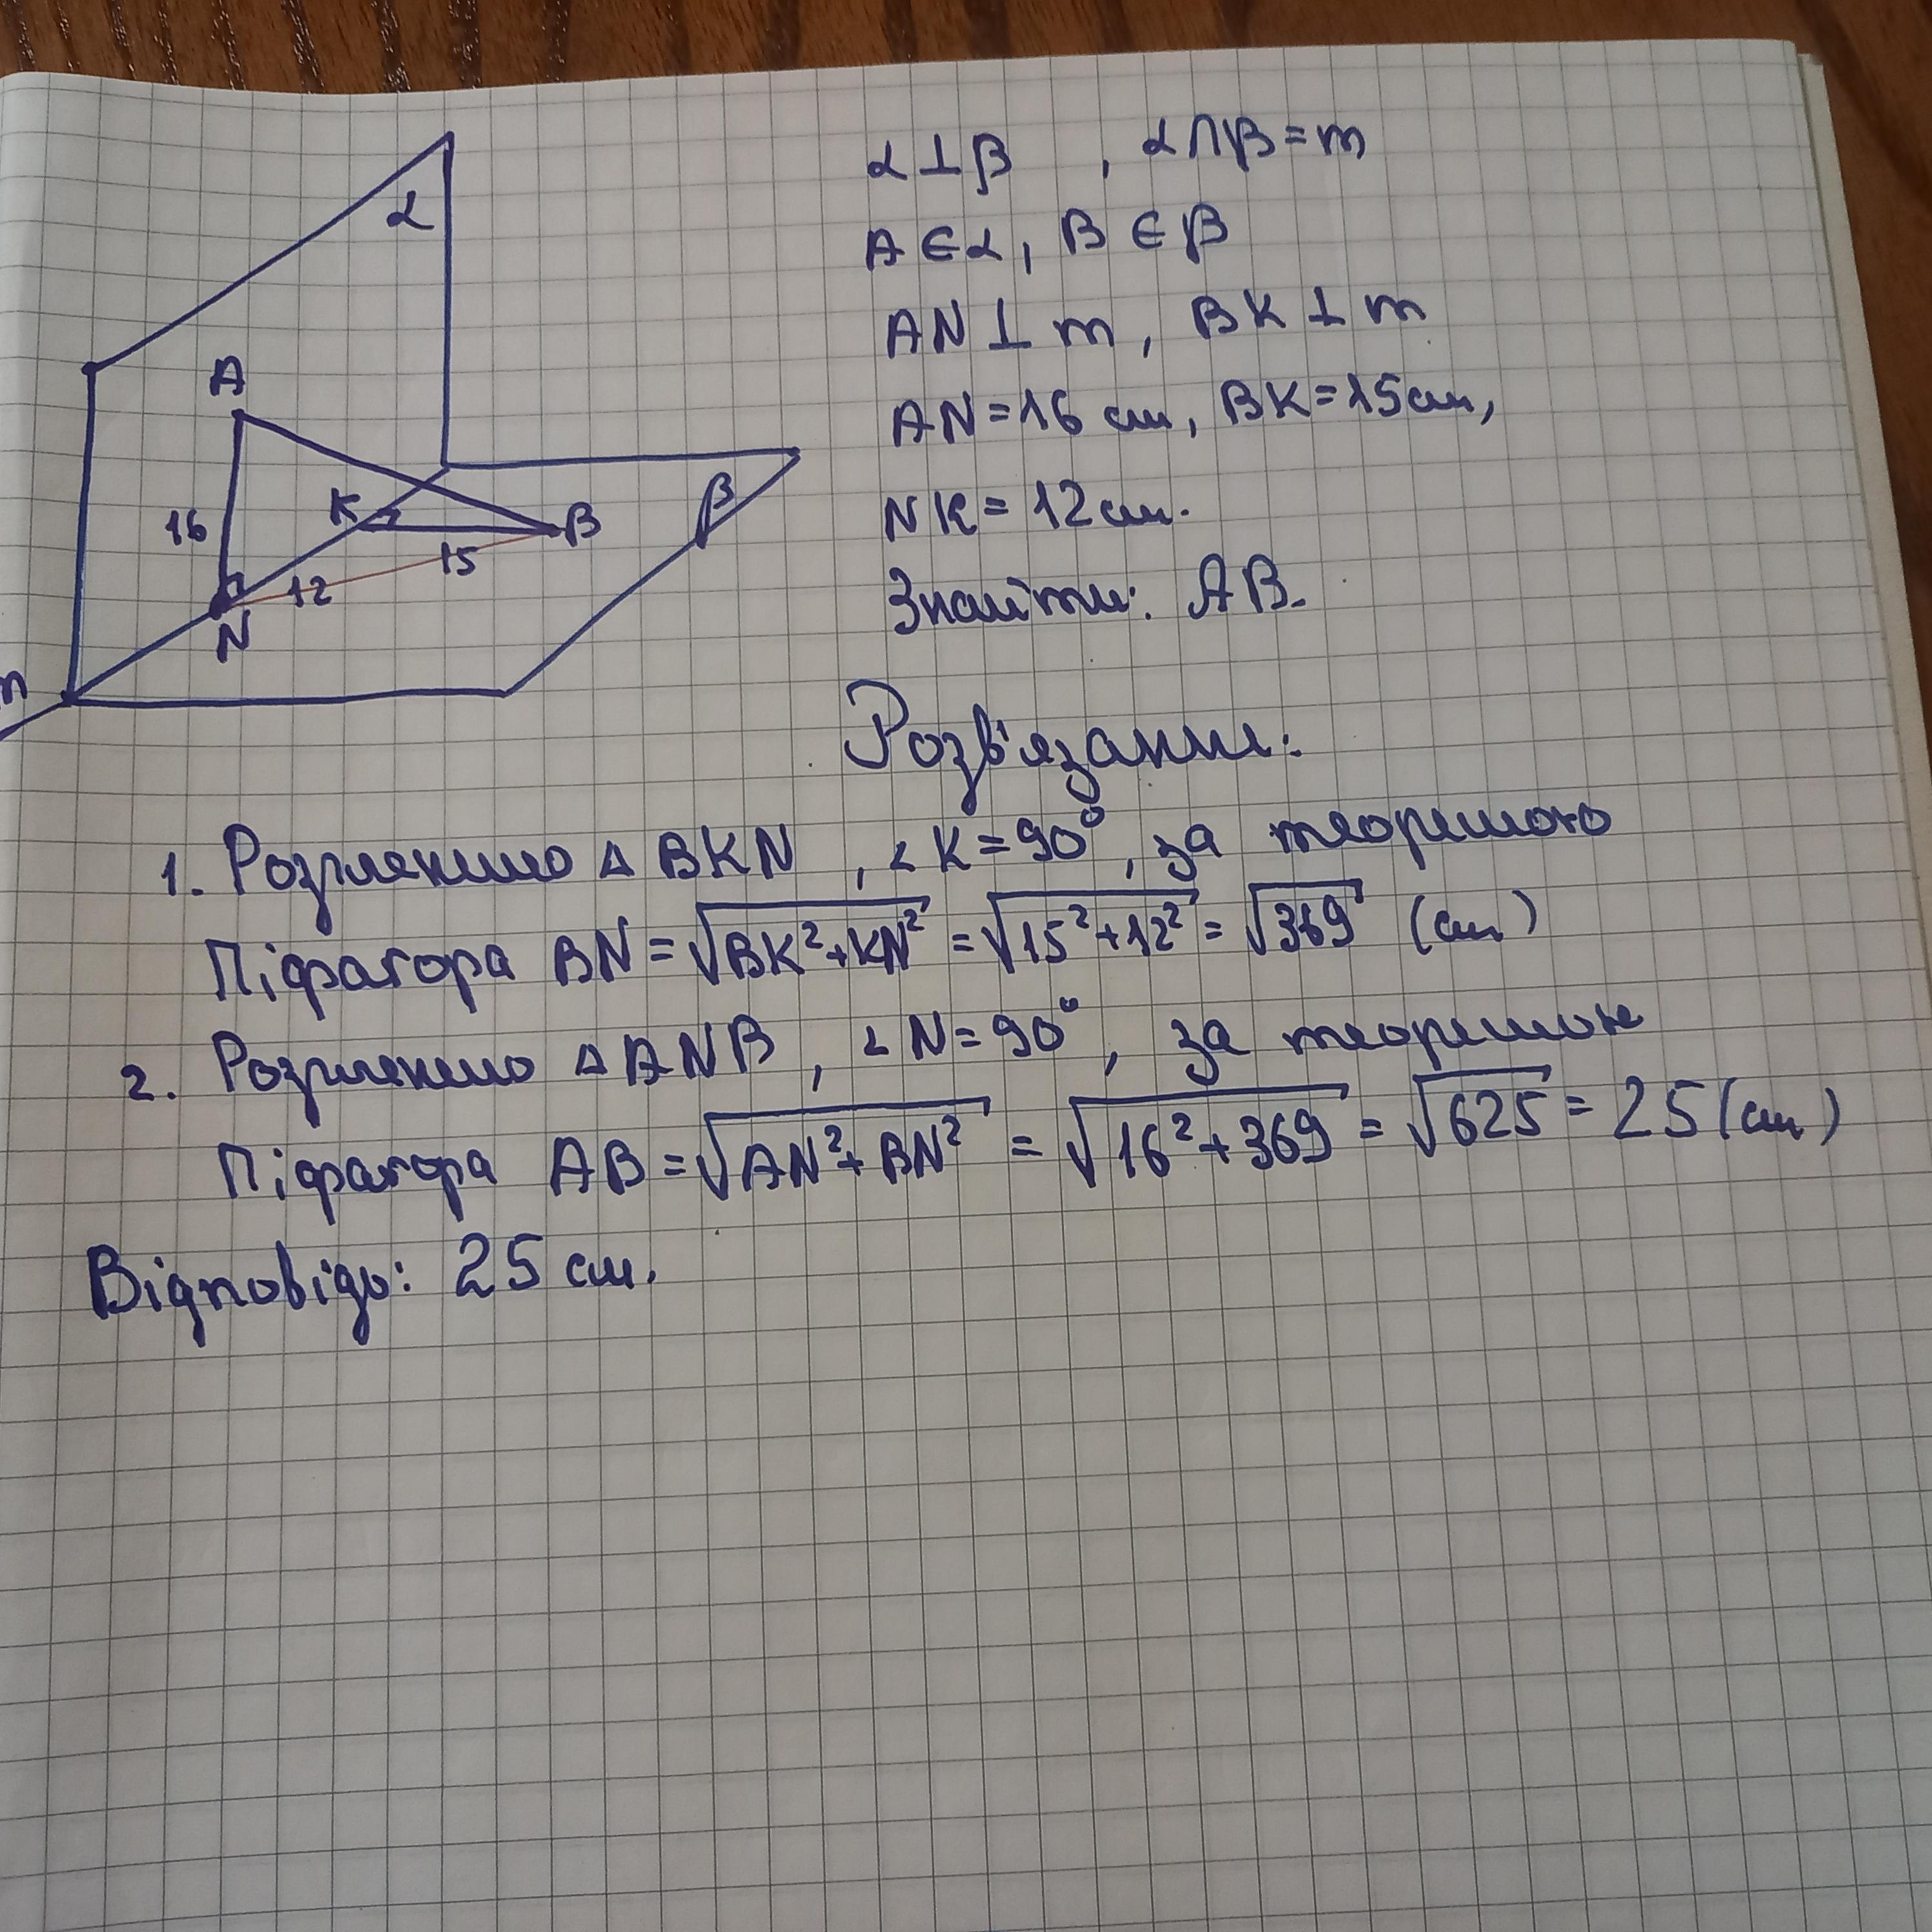 α
A
16
K
B
β
15
12
N
m
α ⊥ β , α ∩ β = m
A ∈ α, B ∈ β
AN ⊥ m, BK ⊥ m
AN = 16 см, BK = 15 см,
NK = 12 см.
Знайти: AB.
Розв'язання:
1. Розглянемо △ BKN, ∠K = 90°, за теоремою
Піфагора BN = √(BK² + KN²) = √(15² + 12²) = √369 (см)
2. Розглянемо △ ANB, ∠N = 90°, за теоремою
Піфагора AB = √(AN² + BN²) = √(16² + 369) = √625 = 25 (см)
Відповідь: 25 см.